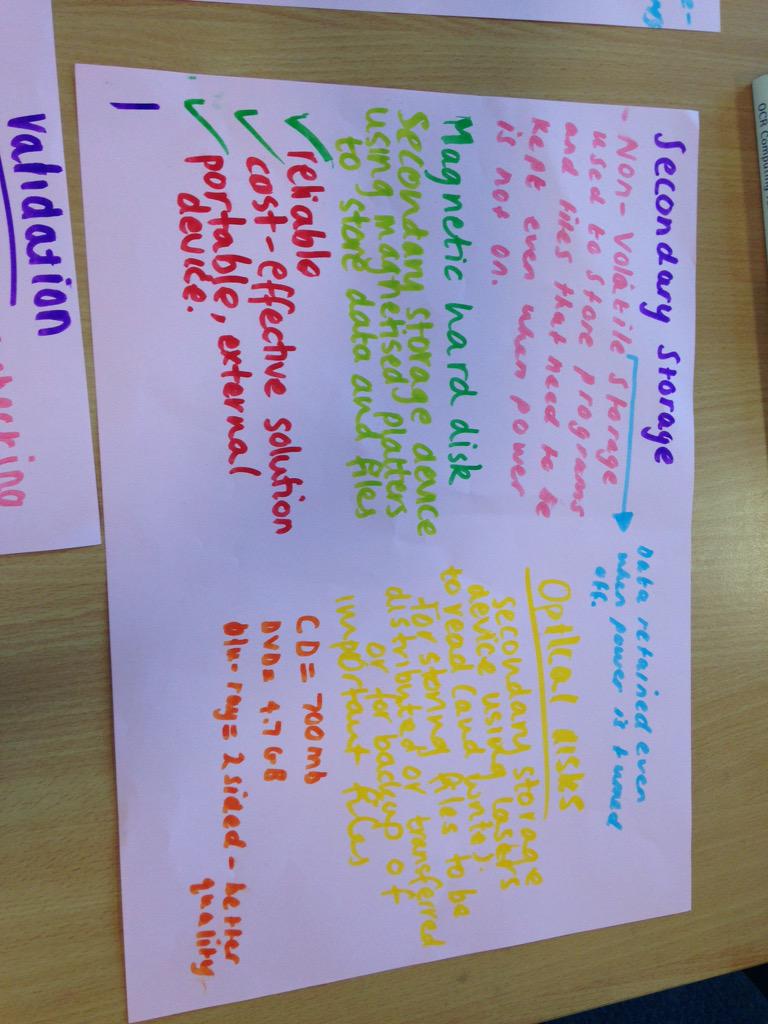 Secondary Storage
- Non-Volatile storage
used to store programs
and files that need to be
kept even when power
is not on.
Data retained even
when power is turned
off.
Magnetic hard disk
Secondary storage device
using magnetised platters
to store data and files
✓ reliable
✓ cost-effective solution
✓ portable, external
device.
Optical disks
secondary storage
device using lasers
to read (and write).
for storing files to be
distributed or transferred
or for backup of
important files
CD = 700mb
DVD = 4.7 GB
Blu-ray = 2 sided - better
quality
validation
OCR Computing